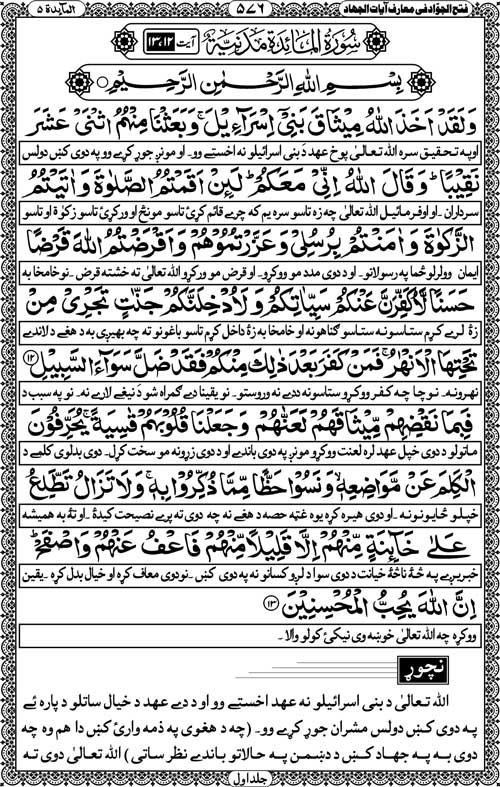 المآيدة ٥ ٥٧٦ فتح الجوّاد في معارف آيات الجهاد
سُورَةُ الْمَائِدَةِ مَدَنِيَّةٌ آیت ١٢، ١٣
بِسْمِ اللهِ الرَّحْمٰنِ الرَّحِيْمِ
وَلَقَدْ اَخَذَ اللهُ مِيْثَاقَ بَنِيْٓ اِسْرَآءِيْلَ ۚ وَبَعَثْنَا مِنْهُمُ اثْنَيْ عَشَرَ
اوپه تحقیق سره الله تعالیٰ پوخ عهد دَ بنی اسرائیلو نه اخستے وو۔ او مونږ جوړ کړے وو په دوی کښ دولس
نَقِيْبًا ؕ وَقَالَ اللهُ اِنِّيْ مَعَكُمْ ؕ لَئِنْ اَقَمْتُمُ الصَّلٰوةَ وَاٰتَيْتُمُ
سرداران۔ او اوفرمائیل الله تعالیٰ چه زه تاسو سره یم که چرے قائم کړئ تاسو مونځ او ورکړئ تاسو زکوٰة او تاسو
الزَّكٰوةَ وَاٰمَنْتُمْ بِرُسُلِيْ وَعَزَّرْتُمُوْهُمْ وَاَقْرَضْتُمُ اللهَ قَرْضًا
ایمان وولرلو ځما په رسولانو۔ او د دوی مدد مو ووکړو۔ او قرض مو ورکړو الله تعالیٰ ته ښخته قرض۔ نو خامخا به
حَسَنًا لَّاُكَفِّرَنَّ عَنْكُمْ سَيِّاٰتِكُمْ وَلَاُدْخِلَنَّكُمْ جَنّٰتٍ تَجْرِيْ مِنْ
زهٔ لرے کړم ستاسو نه ستاسو ګناهونه او خامخا به زهٔ داخل کړم تاسو باغونو ته چه بهیږی به د هغے د لاندے
تَحْتِهَا الْاَنْهٰرُ ۚ فَمَنْ كَفَرَ بَعْدَ ذٰلِكَ مِنْكُمْ فَقَدْ ضَلَّ سَوَآءَ السَّبِيْلِ ﴿١٢﴾
نهرونه۔ نو چا چه کفر ووکړو ستاسو نه د دے نه وروستو۔ نو یقینا دے ګمراه شو دَ نیغے لارے نه۔ نو په سبب د
فَبِمَا نَقْضِهِمْ مِّيْثَاقَهُمْ لَعَنّٰهُمْ وَجَعَلْنَا قُلُوْبَهُمْ قٰسِيَةً ۚ يُحَرِّفُوْنَ
ماتولو د دوی خپل عهد لره لعنت ووکړو مونږ په دوی باندے او د دوی زړونه مو سخت کړل۔ دوی بدلوی کلمے د
الْكَلِمَ عَنْ مَّوَاضِعِهٖ ۙ وَنَسُوْا حَظًّا مِّمَّا ذُكِّرُوْا بِهٖ ۚ وَلَا تَزَالُ تَطَّلِعُ
خپلو ځایونو نه۔ او دوی هیره کړه یوه غټه حصه د هغے نه چه دوی ته پرے نصیحت کیدهٔ۔ او تهٔ به همیشه
عَلٰى خَآئِنَةٍ مِّنْهُمْ اِلَّا قَلِيْلًا مِّنْهُمْ فَاعْفُ عَنْهُمْ وَاصْفَحْ ؕ
خبریږے په څهٔ ناڅهٔ خیانت د دوی سوا د لږو کسانو نه په دوی کښ۔ نو دوی معاف کړه او خیال بدل کړه۔ یقین
اِنَّ اللهَ يُحِبُّ الْمُحْسِنِيْنَ ﴿١٣﴾
ووکړه چه الله تعالیٰ خوښه وی نیکئ کولو والا۔
نچوړ
الله تعالیٰ د بنی اسرائیلو نه عهد اخستے وو او د دے عهد د خیال ساتلو د پاره ئے
په دوی کښ دولس مشران جوړ کړے وو۔ (چه د هغوی په ذمه وارئ کښ دا هم وه چه
دوی به په جهاد کښ د دښمن په حالاتو باندے نظر ساتی) الله تعالیٰ دوی ته
جلد اول